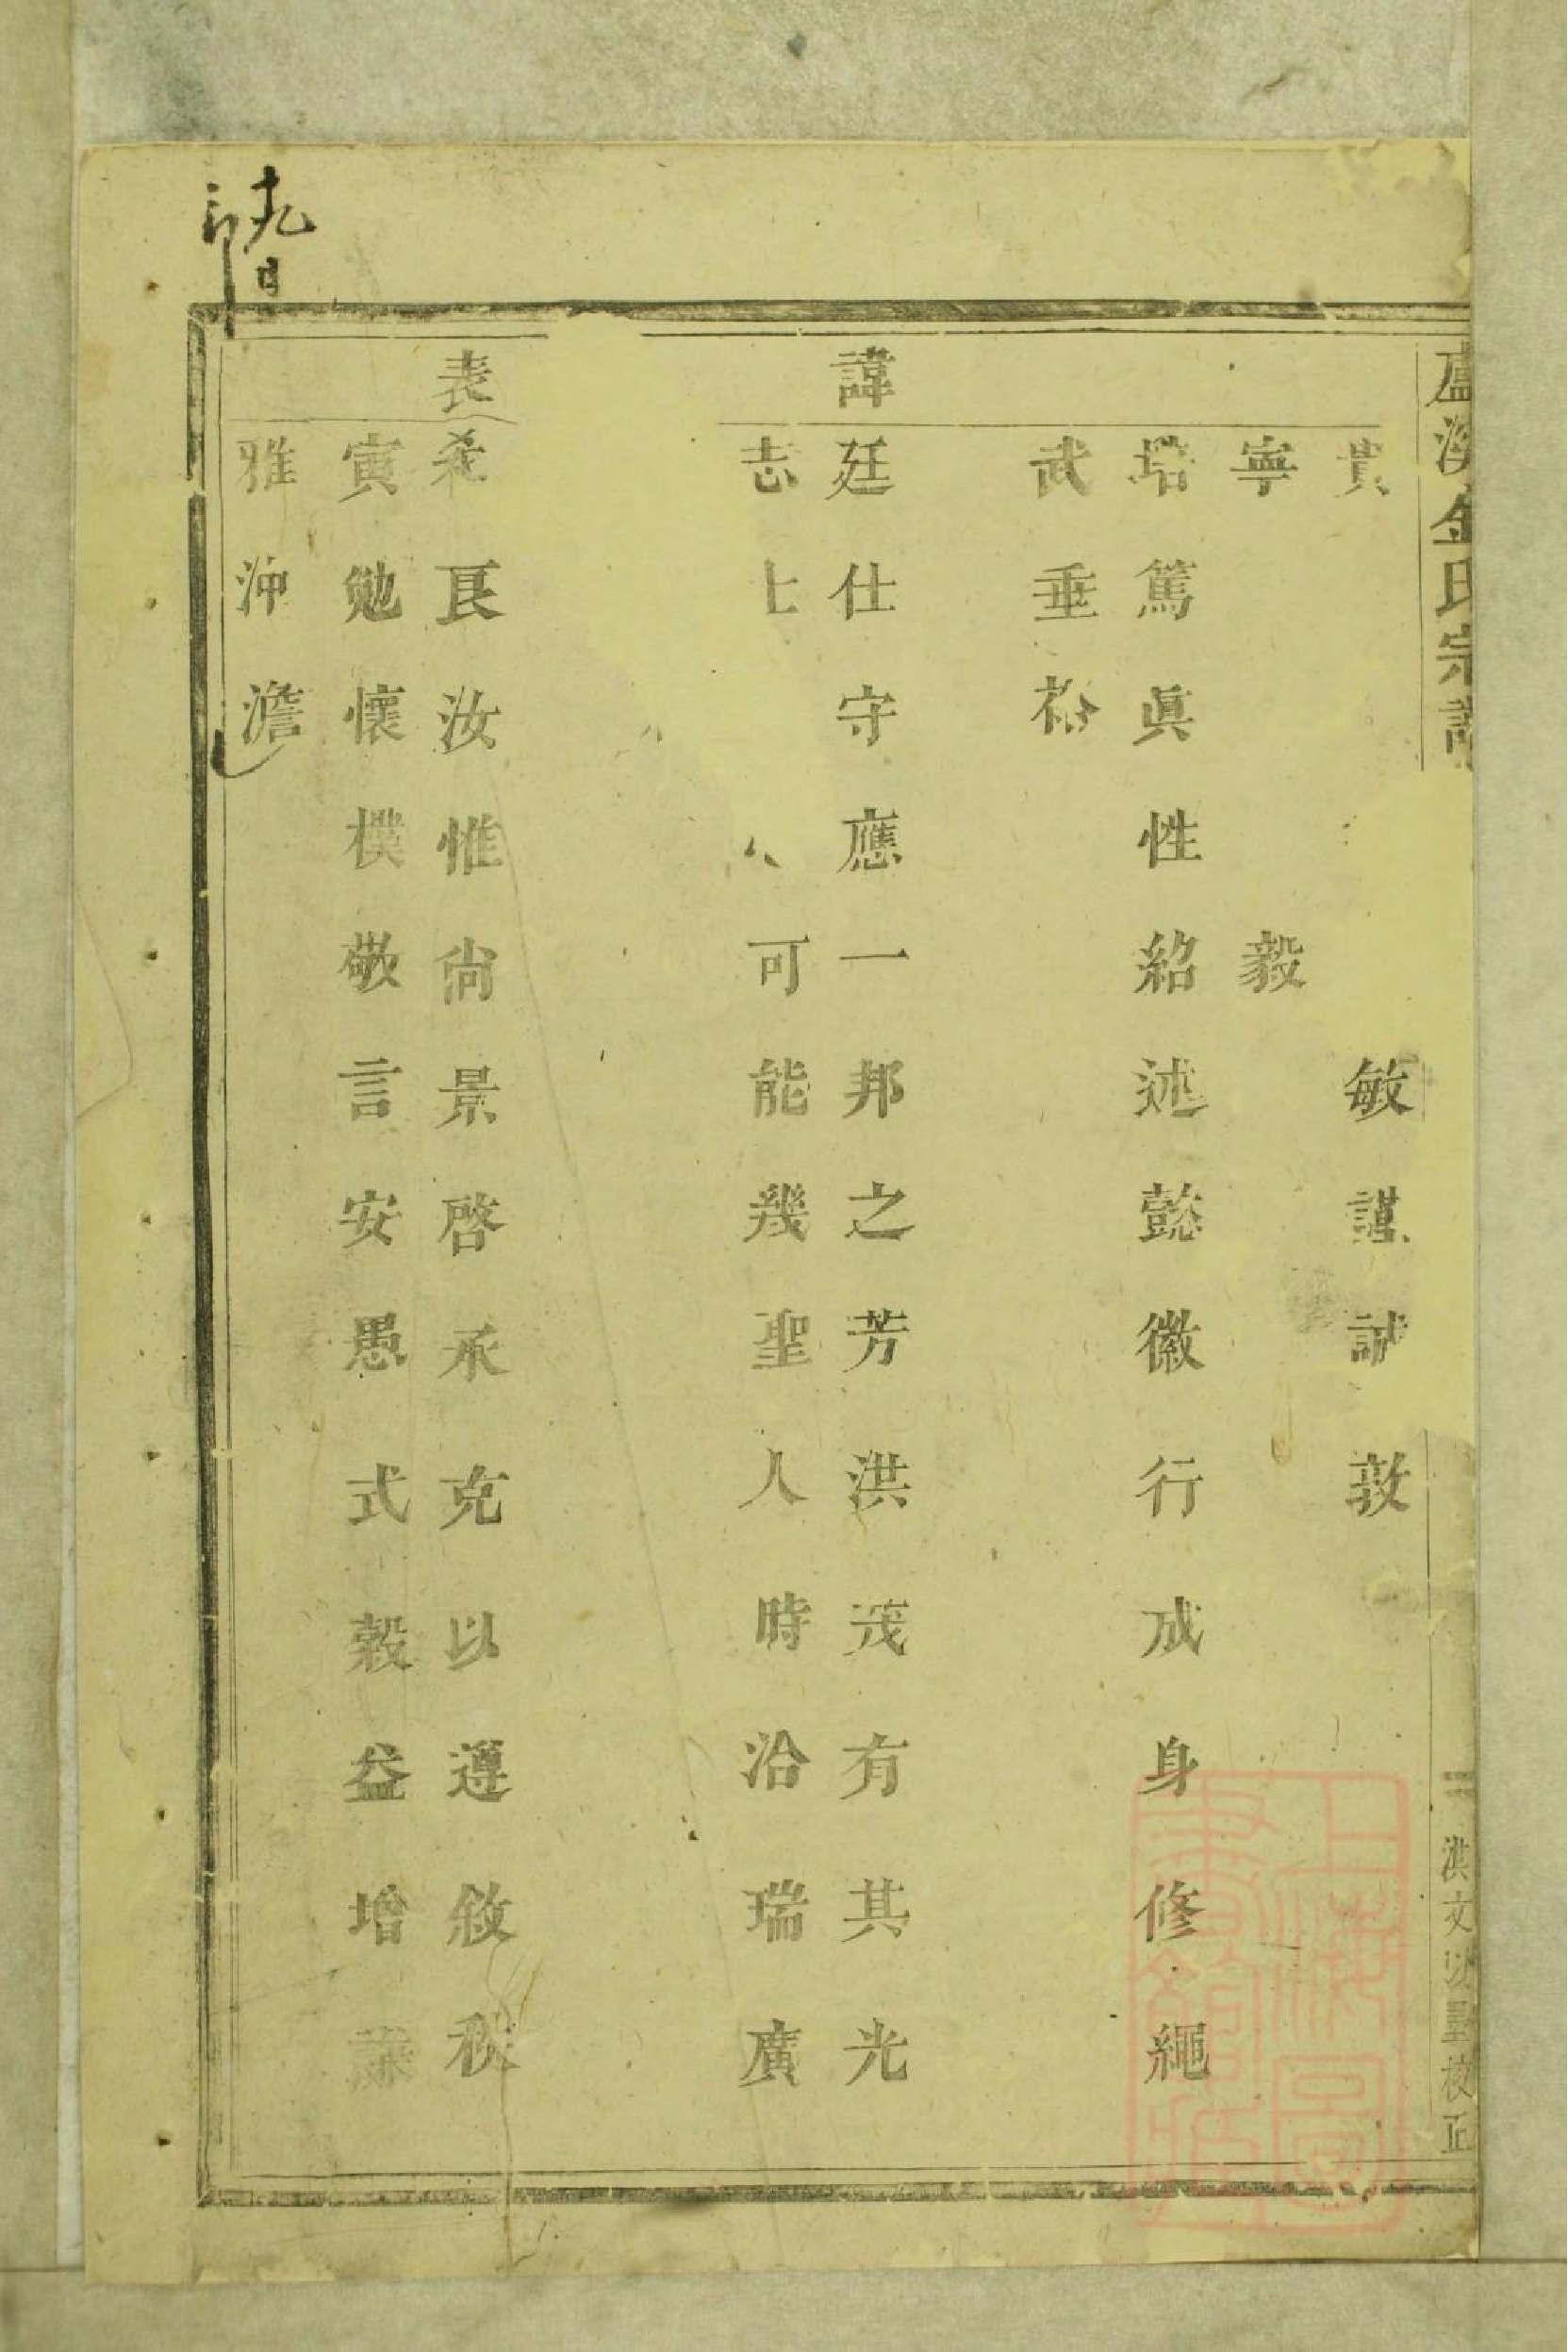 盧溪金氏宗譜
一 洪文以墨校正
貴 敏謹誠敦
寧 毅
培篤眞性紹述懿徽行成身修繩
武垂裕
諱
廷仕守應一邦之芳洪茂有其光
志士 可能幾聖人時洽瑞廣
表
希良汝惟尙景啓承克以遵敘秩
寅勉懷樸敬言安愚式穀益增
雅沖澹
十九日
上海圖書館藏